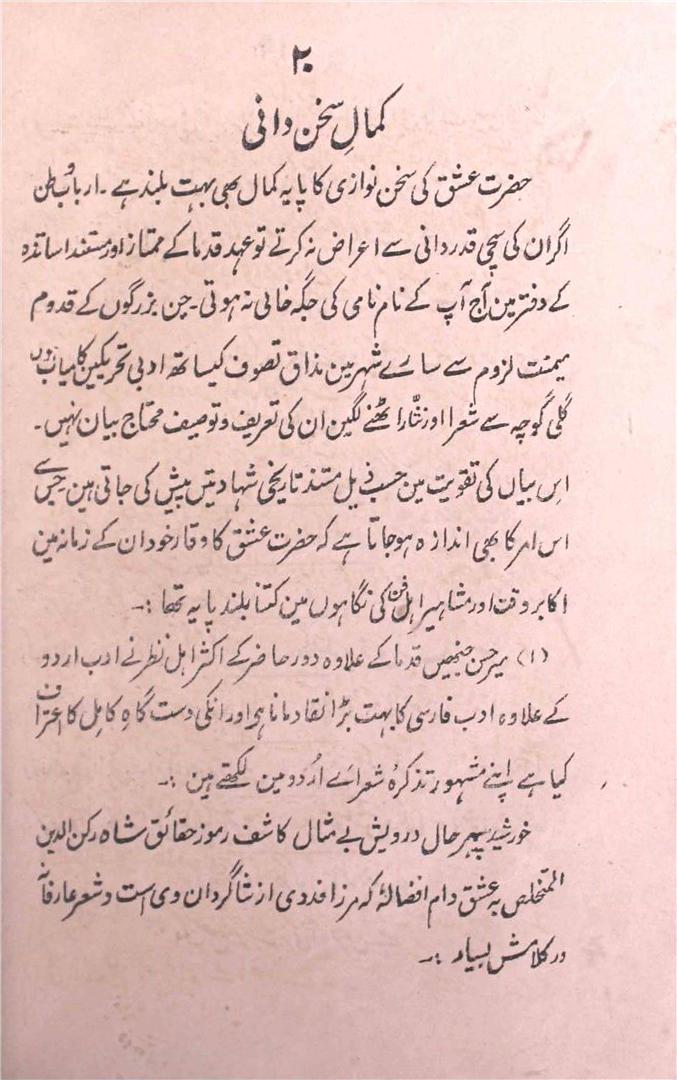 ۲۰
کمالِ سخن دانی
حضرت عشق کی سخن نوازی کا پایہ کمال بھی بہت بلند ہے ۔ اربابِ وطن
اگر ان کی سچی قدردانی سے اعراض نہ کرتے تو عہد قدما کے ممتاز اور مستند اساتذہ
کے دفتر مین آج آپ کے نام نامی کی جگہ خالی نہ ہوتی ۔ جن بزرگوں کے قدوم
میمنت لزوم سے سارے شہر مین مذاق تصوف کیساتھ ادبی تحریکین کامیاب ہوں
گلی گوچہ سے شعرا اور نثّار اٹھنے لگین ان کی تعریف و توصیف محتاج بیان نہیں ۔
اِس بیاں کی تقویت مین حسب ذیل مستند تاریخی شہادتیں پیش کی جاتی ہین جس سے
اس امر کا بھی اندازہ ہوجاتا ہے کہ حضرت عشق کا وقار خود ان کے زمانہ مین
اکابر وقت اور مشاہیر اہل فن کی نگاہوں مین کتنا بلند پایہ تھا :۔
(۱) میر حسن جنھیں قدما کے علاوہ دور حاضر کے اکثر اہل نظر نے ادب اردو
کے علاوہ ادب فارسی کا بہت بڑا نقاد مانا ہو اور انکی دست گاہِ کامِل کا اعتراف
کیا ہے اپنے مشہور تذکرۂ شعراے اُردو مین لکھتے ہین :۔
خورشید سپہر حال درویش بے مثال کاشف رموز حقائق شاہ رکن الدین
المتخلص بہ عشق دام افضالہٗ کہ مرزا فدوی از شاگردان وی است و شعر عارفانہ
در کلامش بسیار :۔